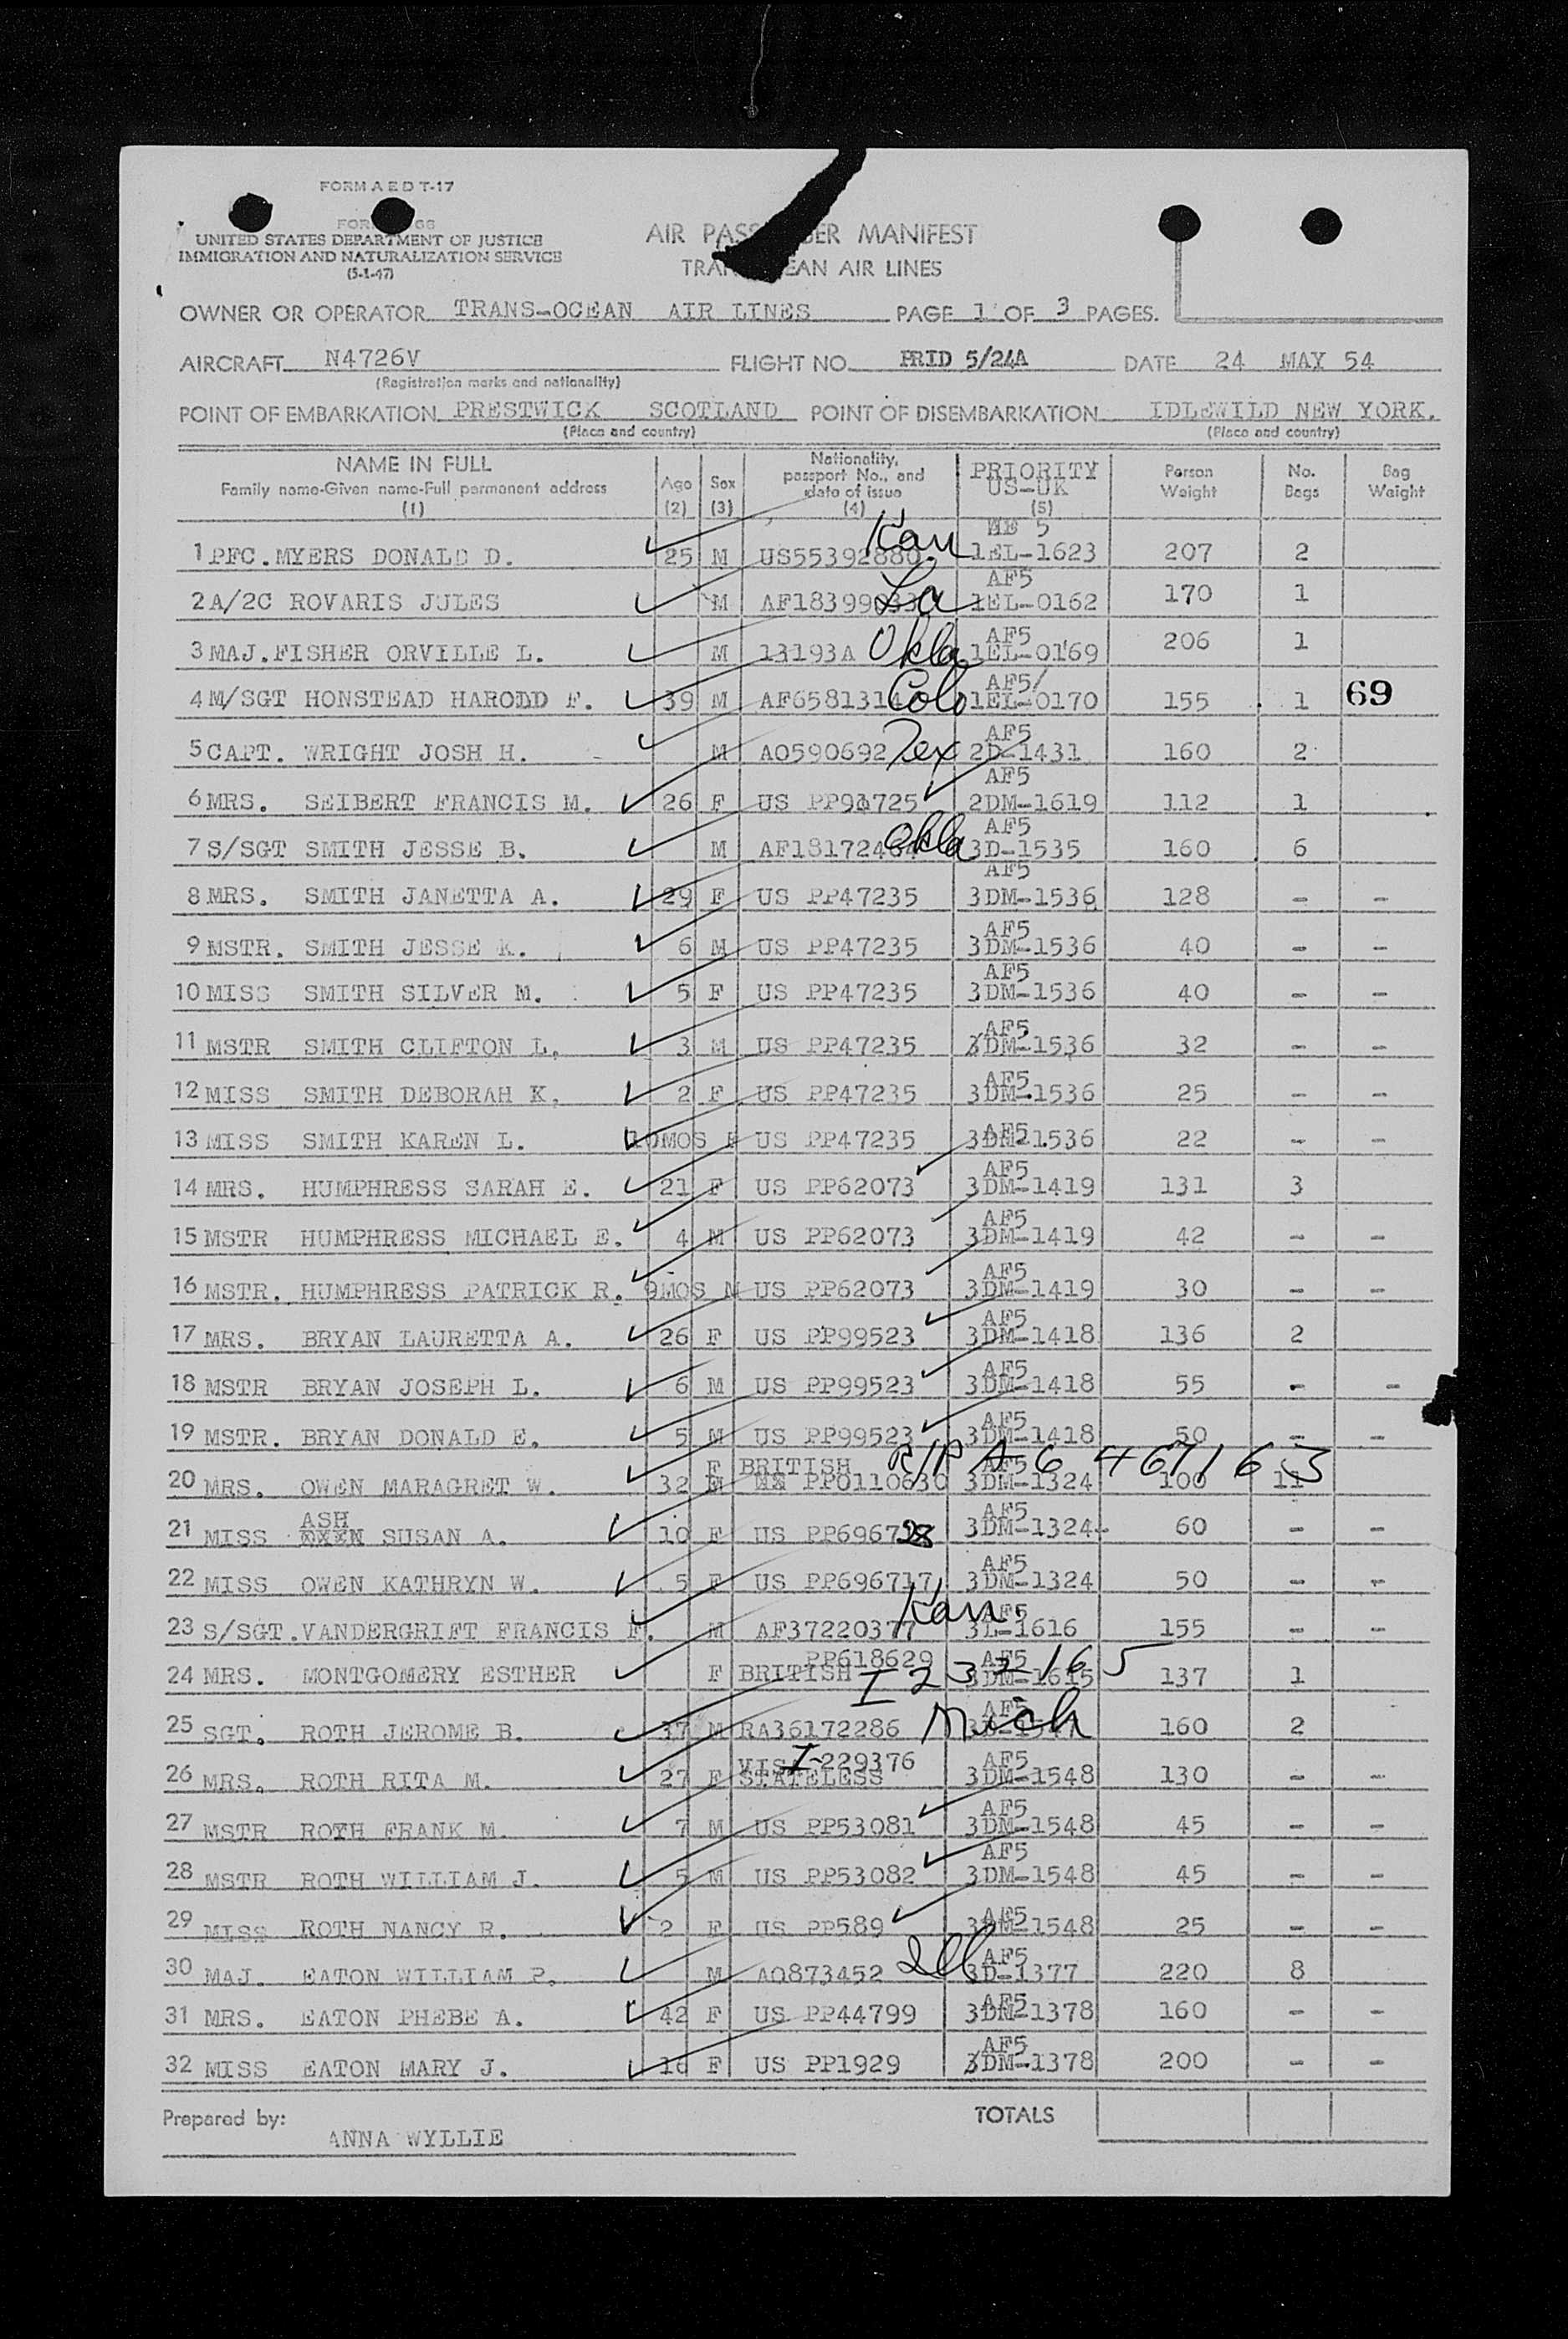 FORM A E D T-17
UNITED STATES DEPARTMENT OF JUSTICE
IMMIGRATION AND NATURALIZATION SERVICE
(5-1-47)
AIR MANIFEST
AIR LINES
OWNER OR OPERATOR TRANS-OCEAN AIR LINES PAGE 1 OF 3 PAGES.
AIRCRAFT N4726V FLIGHT NO. PRID 5/24A DATE 24 MAY 54
(Registration marks and nationality)
POINT OF EMBARKATION PRESTWICK SCOTLAND POINT OF DISEMBARKATION IDLEWILD NEW YORK.
(Place and country) (Place and country)
NAME IN FULL Family name-Given name-Full permanent address (1) Age (2) Sex (3) Nationality, passport No., and date of issue (4) PRIORITY US-UK (5) Person Weight No. Bags Bag Weight
1 PFC. MYERS DONALD D. 25 M US55392880 Kan 5 1EL-1623 207 2
2 A/2C ROVARIS JULES M La AF5 1EL-0162 170 1
3 MAJ. FISHER ORVILLE L. M 13193A Okla AF5 1EL-0169 206 1
4 M/SGT HONSTEAD HARODD F. 39 M Colo AF5/ 1EL-0170 155 1 69
5 CAPT. WRIGHT JOSH H. M AO590692 Tex AF5 2D-1431 160 2
6 MRS. SEIBERT FRANCIS M. 26 F US AF5 2DM-1619 112 1
7 S/SGT SMITH JESSE B. M Okla AF5 3D-1535 160 6
8 MRS. SMITH JANETTA A. 29 F US PP47235 AF5 3DM-1536 128 - -
9 MSTR. SMITH JESSE K. 6 M US PP47235 AF5 3DM-1536 40 - -
10 MISS SMITH SILVER M. 5 F US PP47235 AF5 3DM-1536 40 - -
11 MSTR SMITH CLIFTON L. 3 M US PP47235 AF5 3DM-1536 32 - -
12 MISS SMITH DEBORAH K. 2 F US PP47235 AF5 3DM-1536 25 - -
13 MISS SMITH KAREN L. 10MOS F US PP47235 AF5 3DM-1536 22 - -
14 MRS. HUMPHRESS SARAH E. 21 F US PP62073 AF5 3DM-1419 131 3
15 MSTR HUMPHRESS MICHAEL E. 4 M US PP62073 AF5 3DM-1419 42 - -
16 MSTR. HUMPHRESS PATRICK R. 9MOS M US PP62073 AF5 3DM-1419 30 - -
17 MRS. BRYAN LAURETTA A. 26 F US PP99523 AF5 3DM-1418 136 2
18 MSTR BRYAN JOSEPH L. 6 M US PP99523 AF5 3DM-1418 55 - -
19 MSTR. BRYAN DONALD E. 5 M US PP99523 AF5 3DM-1418 50 - -
20 MRS. OWEN MARAGRET W. 32 F BRITISH PP0110630 R/P A 6 467163 AF5 3DM-1324 100 11
21 MISS ASH SUSAN A. 10 F US AF5 3DM-1324 60 - -
22 MISS OWEN KATHRYN W. 5 F US PP696717 AF5 3DM-1324 50 - -
23 S/SGT. VANDERGRIFT FRANCIS F. M AF37220377 Kan. AF5 3L-1616 155 - -
24 MRS. MONTGOMERY ESTHER F BRITISH PP618629 I 232165 AF5 3DM-1615 137 1
25 SGT. ROTH JEROME B. 37 M RA36172286 Mich AF5 160 2
26 MRS. ROTH RITA M. 27 F VISA I-229376 STATELESS AF5 3DM-1548 130 - -
27 MSTR ROTH FRANK M. 7 M US PP53081 AF5 3DM-1548 45 - -
28 MSTR ROTH WILLIAM J. 5 M US PP53082 AF5 3DM-1548 45 - -
29 MISS ROTH NANCY R. 2 F US PP589 AF5 3DM-1548 25 - -
30 MAJ. EATON WILLIAM P. M AO873452 Ill AF5 3D-1377 220 8
31 MRS. EATON PHEBE A. 42 F US PP44799 AF5 3DM-1378 160 - -
32 MISS EATON MARY J. F US PP1929 AF5 3DM-1378 200 - -
Prepared by: ANNA WYLLIE TOTALS